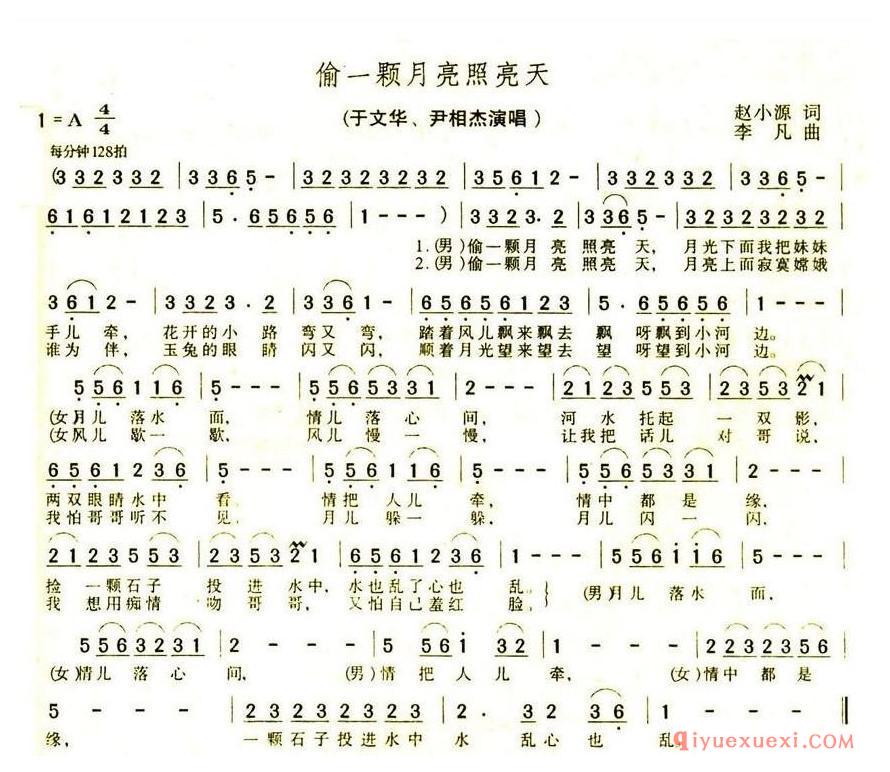 偷一颗月亮照亮天
1=A 4/4
(于文华、尹相杰演唱)
赵小源 词
李 凡 曲
每分钟128拍
(3 3 2 3 3 2 | 3 3 6 5 - | 3 2 3 2 3 2 3 2 | 3 5 6 1 2 - | 3 3 2 3 3 2 | 3 3 6 5 - |
6 1 6 1 2 1 2 3 | 5 . 6 5 6 5 6 | 1 - - ) | 3 3 2 3 . 2 | 3 3 6 5 - | 3 2 3 2 3 2 3 2 |
1.(男)偷一颗月 亮 照 亮 天, 月光下面我把妹妹
2.(男)偷一颗月 亮 照 亮 天, 月亮上面寂寞嫦娥
3 6 1 2 - | 3 3 2 3 . 2 | 3 3 6 1 - | 6 5 6 5 6 5 6 5 | 5 . 6 5 6 5 6 | 1 - - |
手儿 牵, 花开的小 路 弯又 弯, 踏着风儿飘来飘去 飘 呀飘到小河 边。
谁为 伴, 玉兔的眼 睛 闪又 闪, 顺着月光望来望去 望 呀望到小河 边。
5 5 6 1 1 6 | 5 - - - | 5 5 6 5 3 3 1 | 2 - - - | 2 1 2 3 5 5 3 | 2 3 5 3 2 1 |
(女)月儿 落水 面, 情儿 落心 间, 河水 托起 一 双影,
(女)风儿 歇一 歇, 风儿 慢一 慢, 让我把 话儿 对 哥说,
5 5 6 1 2 3 6 | 5 - - - | 5 5 6 1 1 6 | 5 - - - | 5 5 6 5 3 3 1 | 2 - - - |
两双眼睛水中 看。 情把 人儿 牵, 情中 都是 缘,
我怕哥哥听不 见。 月儿 躲一 躲, 月儿 闪一 闪,
2 1 2 3 5 5 3 | 2 3 5 3 2 1 | 6 5 5 6 1 2 3 6 | 1 - - - | 5 5 6 i i 6 |
捡 一颗石子 投 进 水中, 水也乱了心也 乱。} (男)月儿 落水 面,
我 想用痴情 吻 哥 哥, 又怕自己羞红 脸。
5 5 6 3 2 3 1 | 2 - - - | 5 5 6 i 3 2 | 2 - - - | 2 2 3 2 3 5 6 |
(女)情儿 落心 间, (男)情把 人儿 牵, (女)情中 都是
5 - - - | 2 3 2 3 2 3 2 3 | 2 . 3 2 3 6 | 1 - - - ‖
缘, 一颗石子投进水中 水 乱心也 乱
qiyuexuexi.com